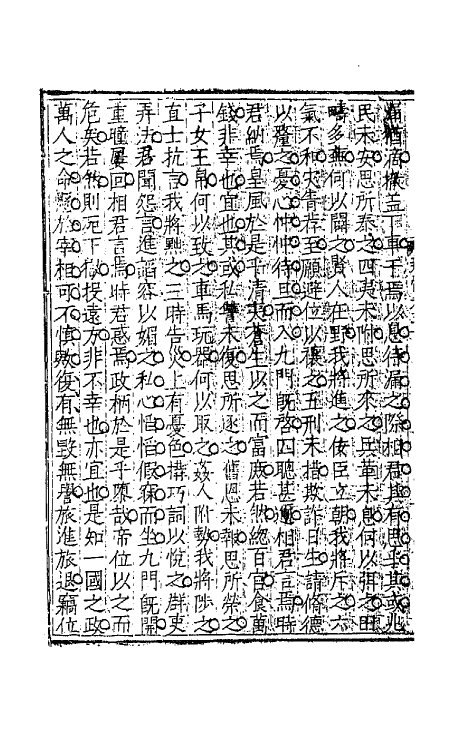 漏猶滴撤盖下車于焉以息待漏之際相君其有思乎其或兆
民未安思所泰之四夷未附思所來之兵革未息何以弭之田
疇多蕪何以闢之賢人在野我將進之佞臣立朝我將斥之六
氣不和災眚荐至願避位以禳之五刑未措欺詐日生請脩德
以釐之憂心忡忡待旦而入九門旣啓四聰甚邇相君言焉時
君納焉皇風於是乎清夷蒼生以之而富庶若然總百官食萬
錢非幸也宜也其或私讐未復思所逐之舊恩未報思所榮之
子女玉帛何以致之車馬玩器何以取之姦人附勢我將陟之
直士抗言我將黜之三時告災上有憂色搆巧詞以悅之群吏
弄法君聞怨言進諂容以媚之私心慆慆假寐而坐九門旣開
重瞳屢回相君言焉時君惑焉政柄於是乎隳哉帝位以之而
危矣若然則死下獄投遠方非不幸也亦宜也是知一國之政
萬人之命懸於宰相可不慎歟復有無毀無譽旅進旅退竊位